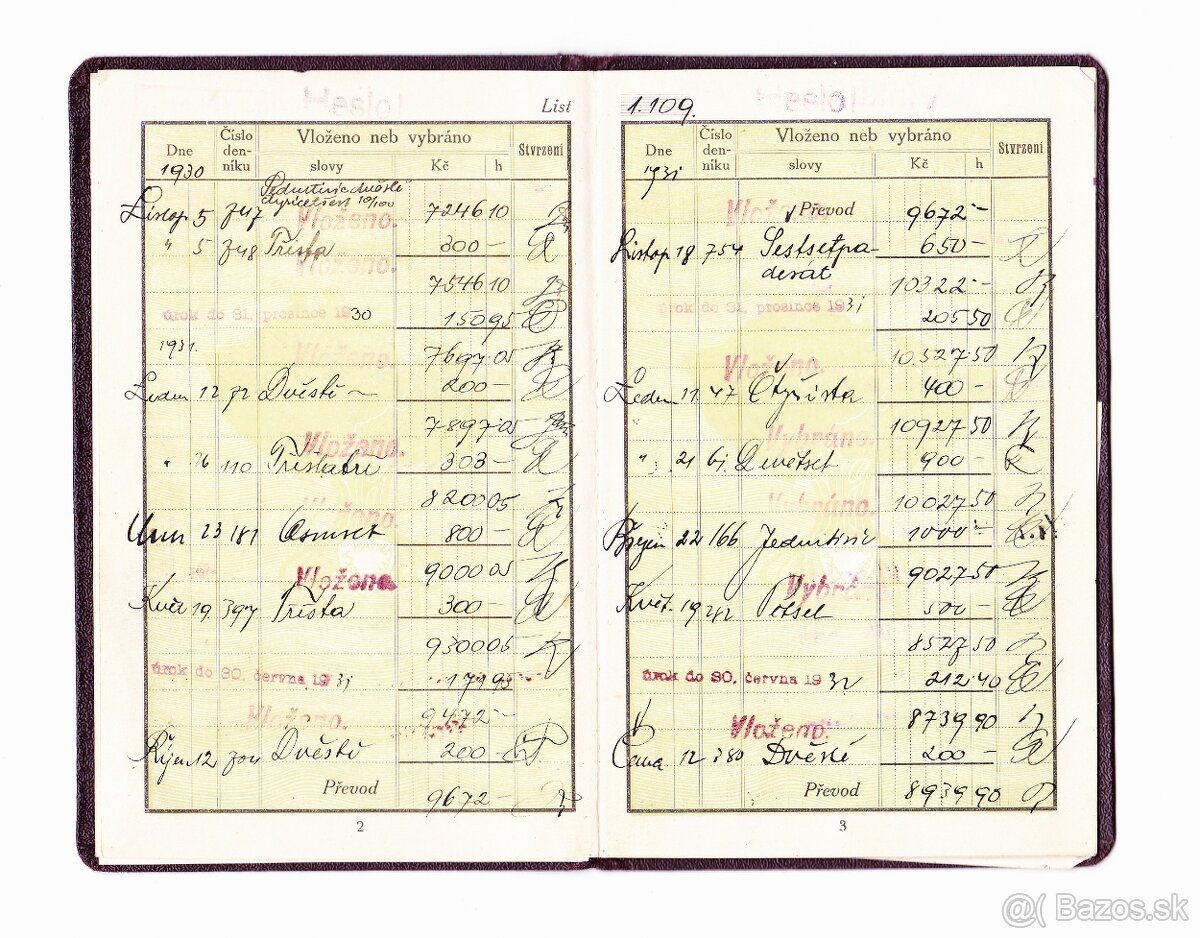 List
Dne
Číslo den-níku
Vloženo neb vybráno
Stvrzení
slovy
Kč
h
1930
Vloženo.
Listop 5 747 7246 10
" 5 748 Třista 300 —
Vloženo.
7546 10
úrok do 31. prosince 1930 150 95
1931.
Vloženo.
7697·05
Leden 12 72 Dvěstě 200 —
7897·05
Vloženo.
" 26 110 Třistatři 303 —
8200 05
Vloženo.
Únor 23 181 Osmset 800 —
9000 05
Vloženo.
Květ 19. 397 Třista 300 —
9300 05
úrok do 30. června 1931 171 95
9472 —
Vloženo.
Říjen 12 704 Dvěstě 200 —
Převod
9672 —
2
1.109.
Dne
Číslo den-níku
Vloženo neb vybráno
Stvrzení
slovy
Kč
h
1931
Vloženo.
Převod 9672 —
Listop 18 754 Šestsetpa- 650 —
desát
10322 —
úrok do 31. prosince 1931 205 50
10.527·50
Vloženo.
Leden 11 47 Čtyřista 400 —
10927 50
Vybráno.
" 21 61 Devětset 900 —
10027 50
Vybráno.
Březen 22 166 Jedentisíc 1000 —
9027 50
Vybráno
Květ. 19 282 Pětset 500 —
8527 50
úrok do 30. června 1932 212·40
8739 90
Vloženo.
12 380 Dvěstě 200 —
Převod 8939 90
3
@( Bazos.sk